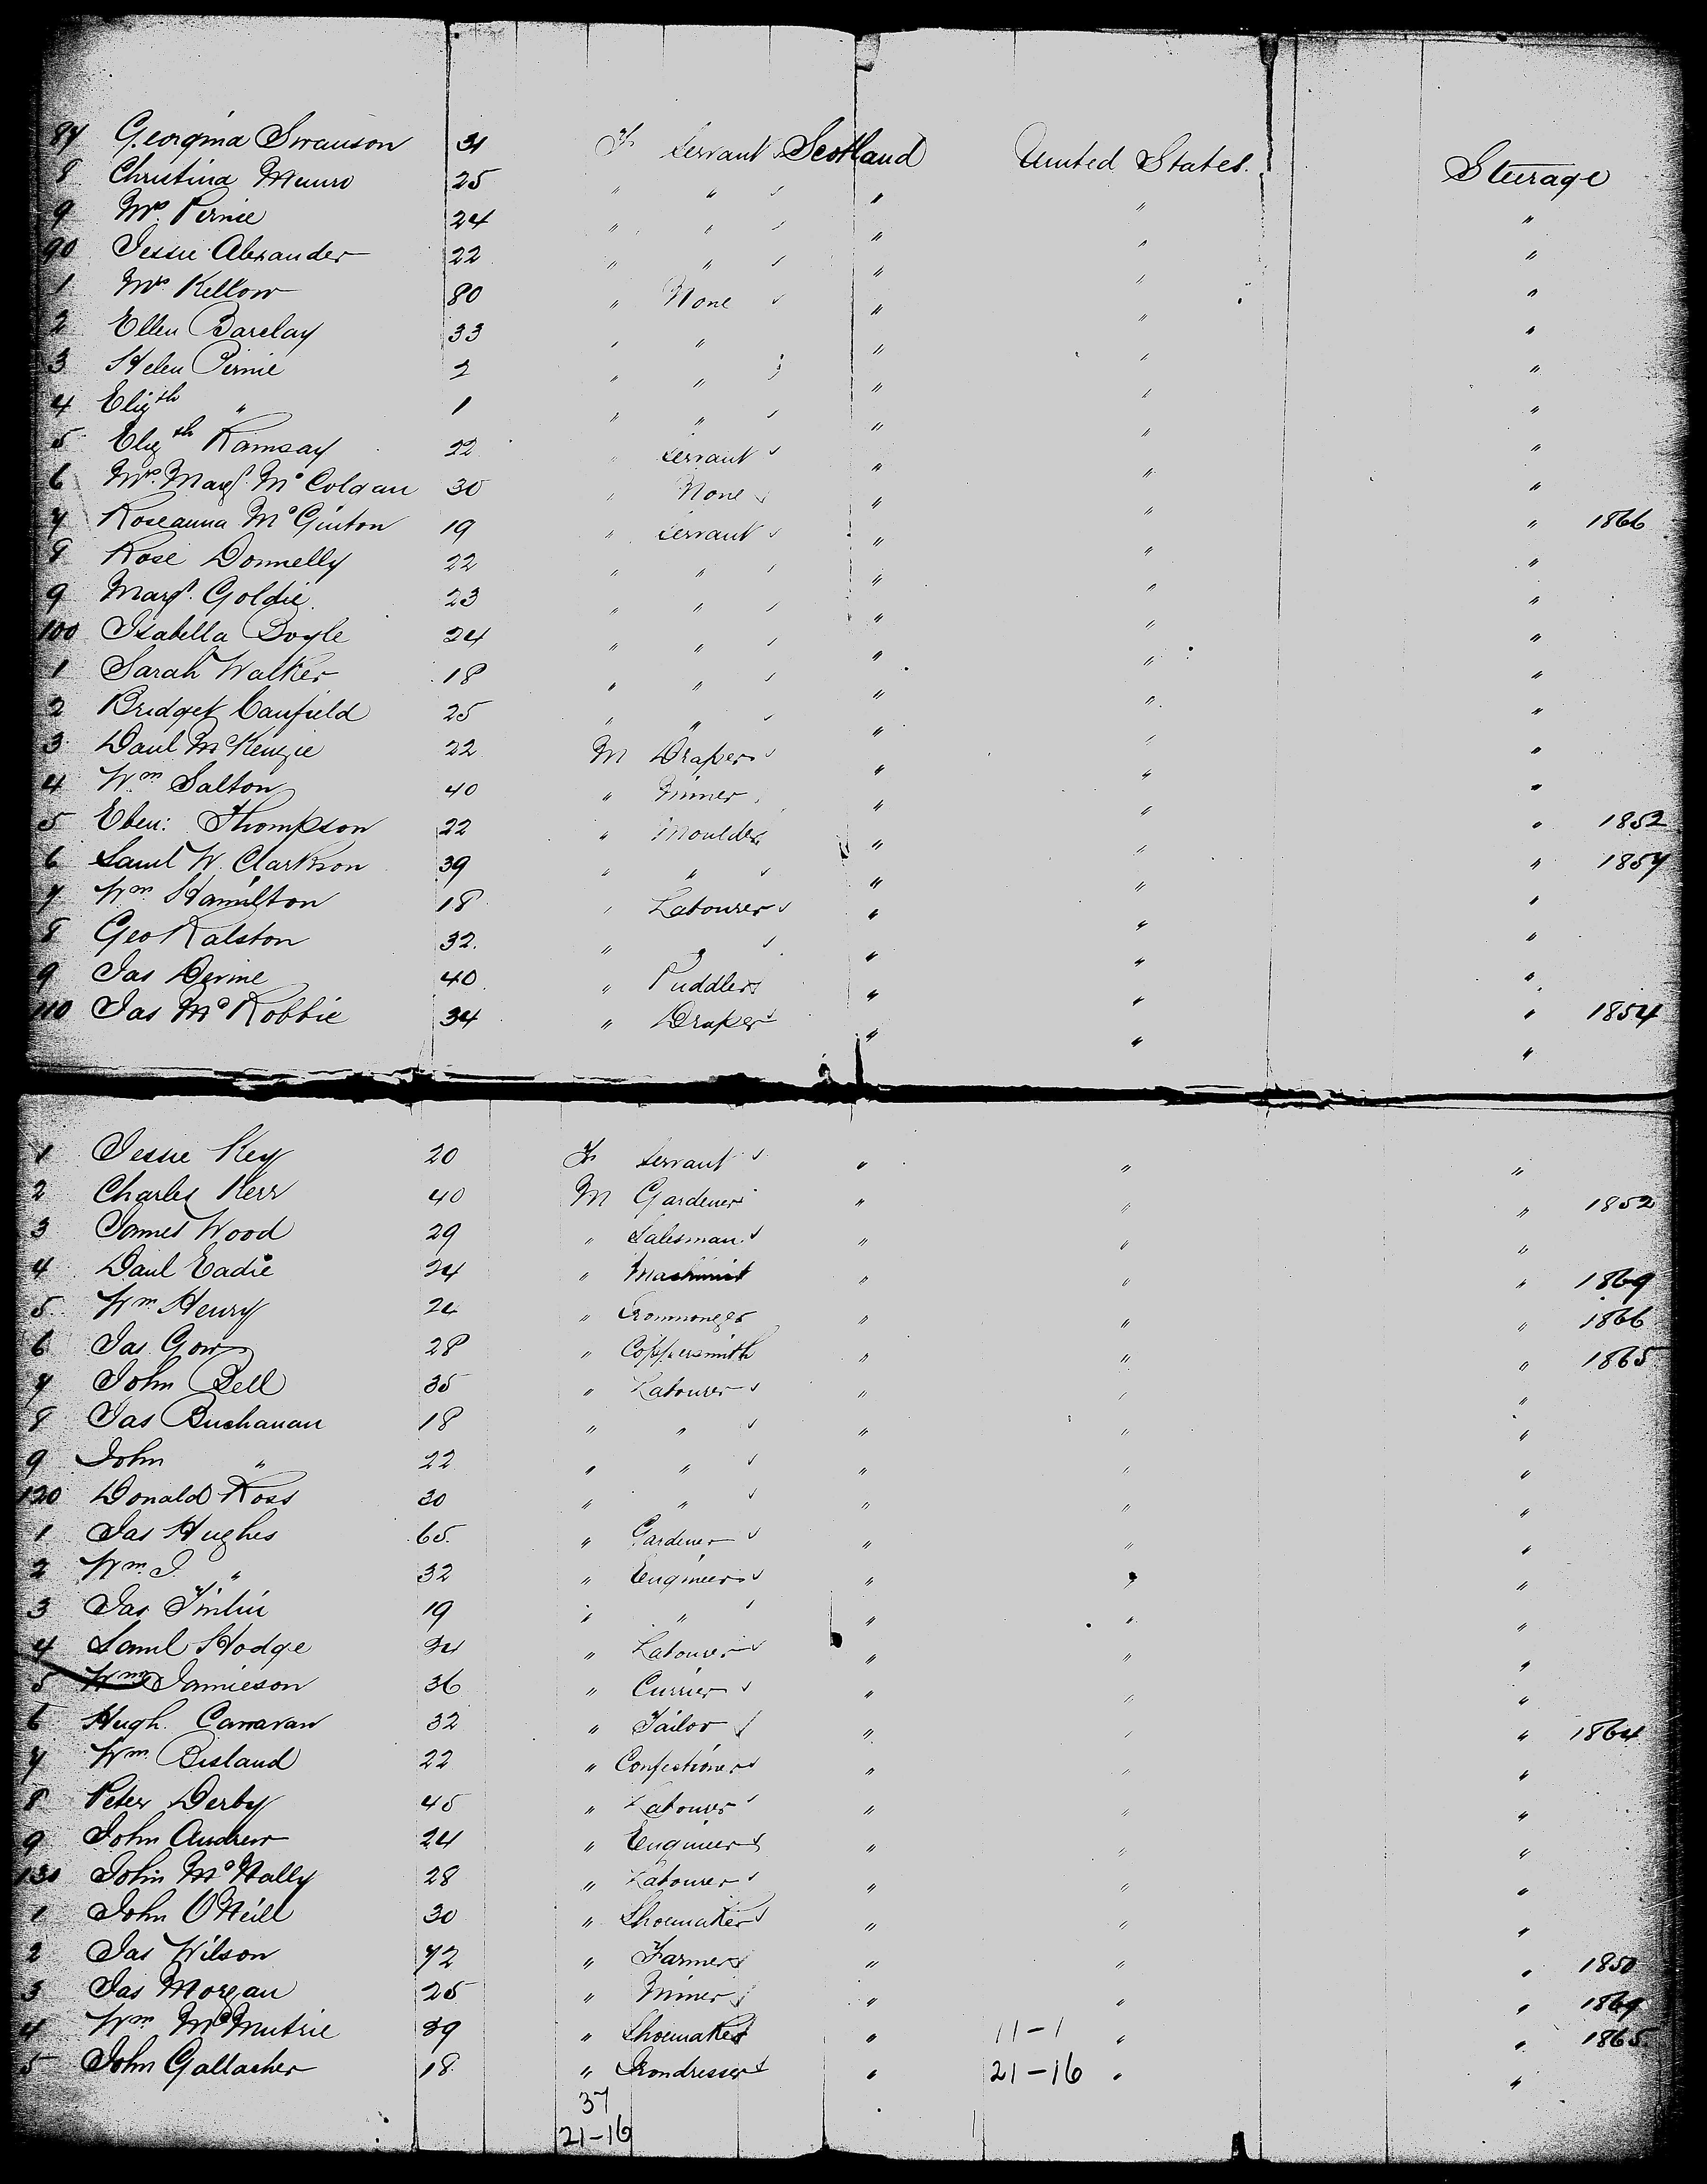 87 Georgina Swanson 31 F Servant Scotland United States Steerage
8 Christina Munro 25 " " " " "
9 Mrs. Pirnie 24 " " " " "
90 Jessie Alexander 22 " " " " "
1 Mrs. Kellow 80 " None " " "
2 Ellen Barclay 33 " " " " "
3 Helen Pirnie 2 " " " " "
4 Elizth " 1 " " " " "
5 Elizth Ramsay 22 " Servant " " "
6 Mrs. Margt. McColgan 30 " None " " "
7 Roseanna McGinton 19 " Servant " " " 1866
8 Rose Donnelly 22 " " " " "
9 Margt. Goldie 23 " " " " "
100 Isabella Boyle 24 " " " " "
1 Sarah Walker 18 " " " " "
2 Bridget Canfield 25 " " " " "
3 Danl McKenzie 22 M Draper " " "
4 Wm Salton 40 " Miner " " "
5 Eben: Thompson 22 " Moulder " " " 1852
6 Saml W. Clarkson 39 " " " " " 1857
7 Wm Hamilton 18 " Labourer " " "
8 Geo Ralston 32 " " " " "
9 Jas Devine 40 " Puddler " " "
110 Jas McRobbie 34 " Draper " " " 1854
1 Jessie Key 20 F Servant " " "
2 Charles Kerr 40 M Gardener " " " 1852
3 James Wood 29 " Salesman " " "
4 Danl Eadie 24 " Machinist " " " 1869
5 Wm Henry 24 " Ironmonger " " " 1866
6 Jas Gow 28 " Coppersmith " " " 1865
7 John Bell 35 " Labourer " " "
8 Jas Buchanan 18 " " " " "
9 John " 22 " " " " "
120 Donald Ross 30 " " " " "
1 Jas Hughes 65 " Gardener " " "
2 Wm. J. " 32 " Engineer " " "
3 Jas Tinlin 19 " " " " "
4 Saml Hodge 34 " Labourer " " "
5 Wm Jamieson 36 " Currier " " "
6 Hugh Canavan 32 " Tailor " " " 1864
7 Wm Bisland 22 " Confectioner " " "
8 Peter Derby 45 " Labourer " " "
9 John Andrew 24 " Engineer " " "
130 John McNally 28 " Labourer " " "
1 John O'Neill 30 " Shoemaker " " "
2 Jas Wilson 72 " Farmer " " " 1850
3 Jas Morgan 25 " Miner " " " 1869
4 Wm McMutrie 39 " Shoemaker " 11-1 " " 1865
5 John Gallacher 18 " Irondresser " 21-16 " "
37
21-16